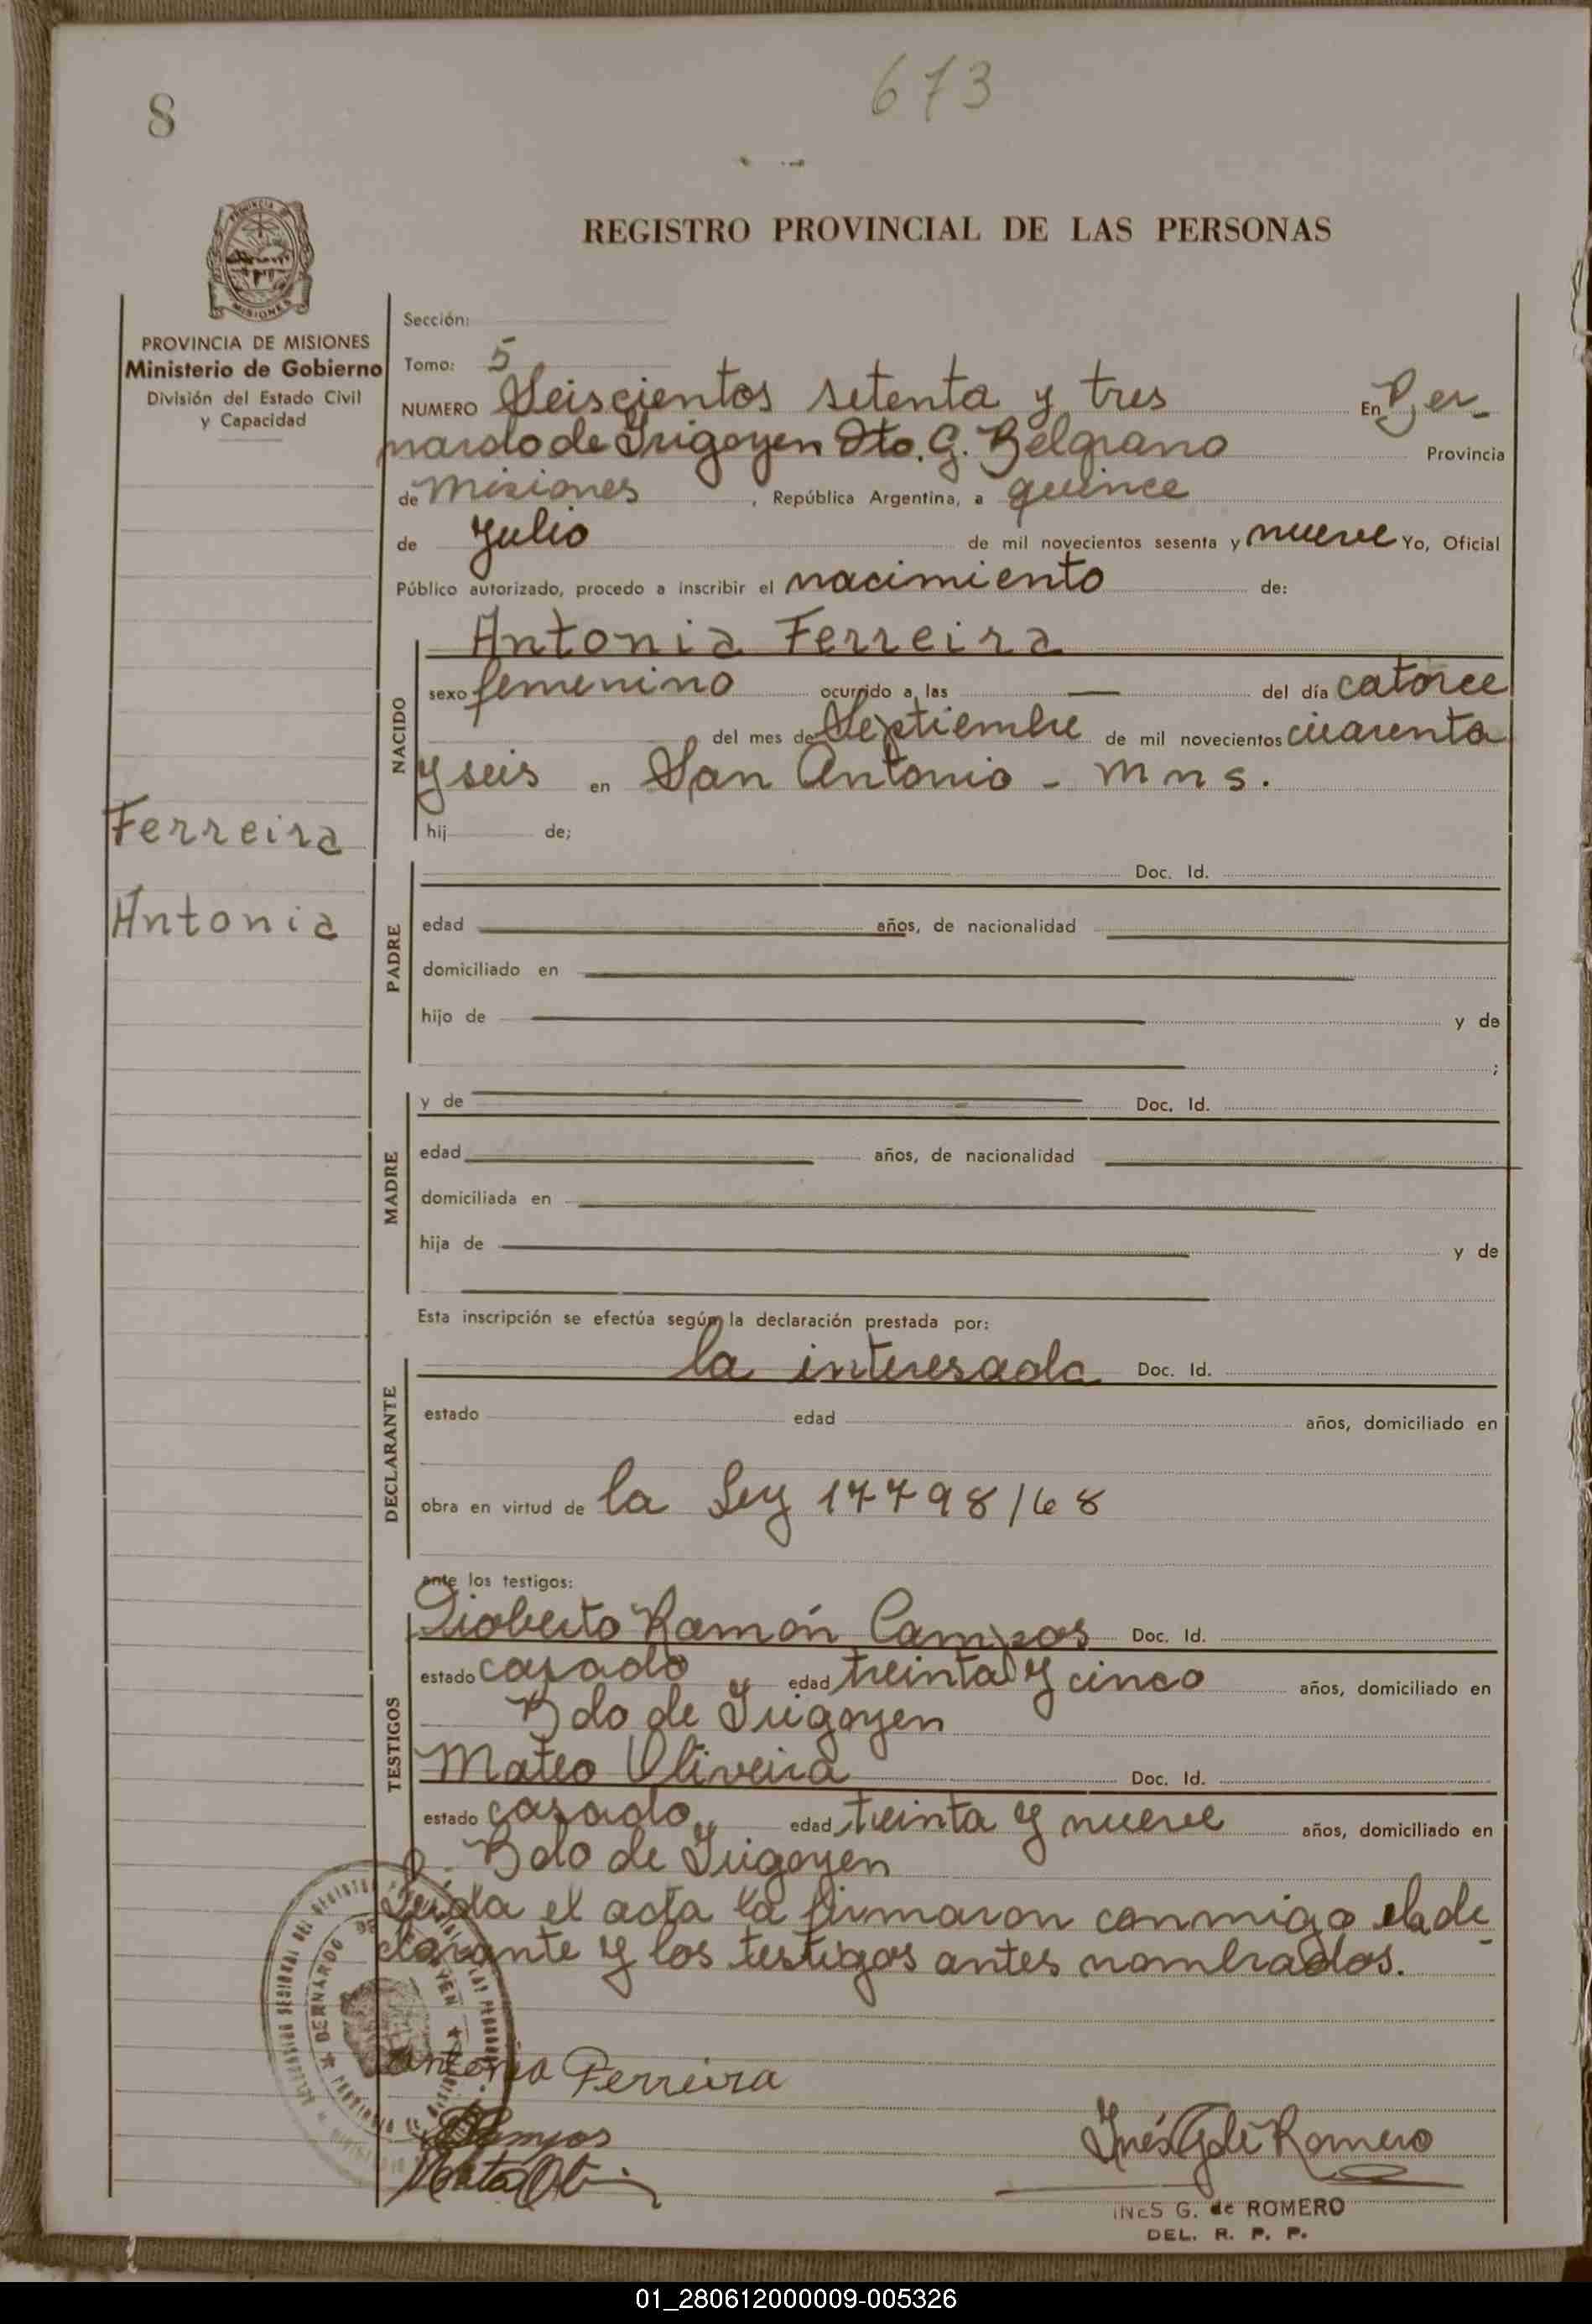 8
673
REGISTRO PROVINCIAL DE LAS PERSONAS
PROVINCIA DE MISIONES
Ministerio de Gobierno
División del Estado Civil
y Capacidad
Sección:
Tomo: 5
NUMERO Seiscientos setenta y tres En Ber-
nardo de Irigoyen Dto. G. Belgrano Provincia
de Misiones, República Argentina, a quince
de Julio de mil novecientos sesenta y nueve Yo, Oficial
Público autorizado, procedo a inscribir el nacimiento de:
Antonia Ferreira
NACIDO
sexo femenino ocurrido a las — del día catorce
del mes de Septiembre de mil novecientos cuarenta
y seis en San Antonio - Mns.
hij de;
Ferreira
Antonia
PADRE
Doc. Id.
edad años, de nacionalidad
domiciliado en
hijo de y de
;
MADRE
y de Doc. Id.
edad años, de nacionalidad
domiciliada en
hija de y de
Esta inscripción se efectúa según la declaración prestada por:
DECLARANTE
la interesada Doc. Id.
estado edad años, domiciliado en
obra en virtud de la Ley 17798/68
ante los testigos:
TESTIGOS
Rioberto Ramón Campos Doc. Id.
estado casado edad treinta y cinco años, domiciliado en
Bdo de Irigoyen
Mateo Oliveira Doc. Id.
estado casado edad treinta y nueve años, domiciliado en
Bdo de Irigoyen
Leída el acta la firmaron conmigo la de
clarante y los testigos antes nombrados.
Antonia Ferreira
Campos
Inés G de Romero
INES G. de ROMERO
DEL. R. P. P.
01_280612000009-005326